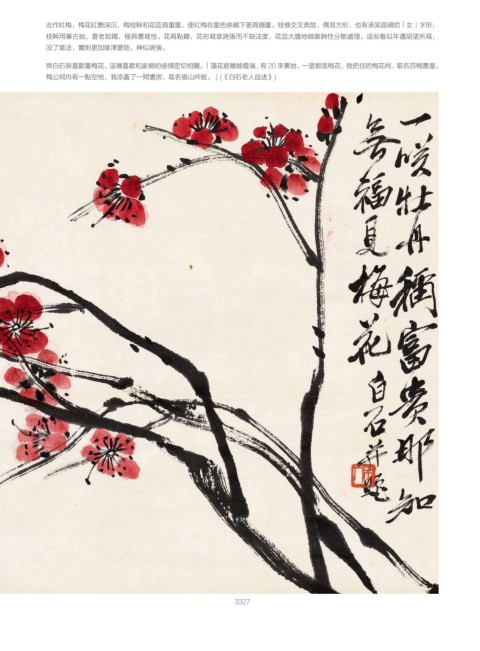 此作紅梅，梅花紅艷深沉，梅枝幹和花蕊爲重墨，使紅梅在墨色映襯下更爲穩重。枝條交叉奔放，偶見方形，也有承吳昌碩的「女」字形；
枝幹用筆古拙，蒼老如鐵，極具書寫性，花爲點瓣，花形寫意誇張而不缺法度，花蕊大膽地做裝飾性分散處理，這些看似年邁胡塗所爲，
没了章法，實則更加雄渾蒼勁，神似誇張。
齊白石很喜歡畫梅花，這種喜歡和家鄉的感情密切相關，「蓮花砦離餘霞嶺，有20來裏地，一望都是梅花，我把住的梅花祠，取名百梅書屋。
梅公祠内有一點空地，我添蓋了一間書房，取名借山吟館。」(《白石老人自述》)
一笑牡丹稱富貴那知
無福見梅花 白石并題
3327